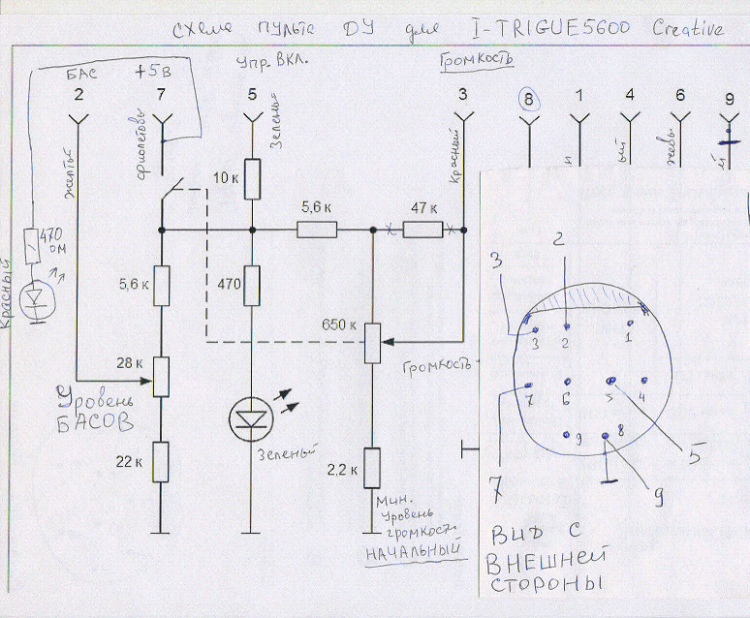 Схема пульта ДУ для I-TRIGUE5600 Creative
БАС
+5 в
Упр. вкл.
Громкость
2
7
5
3
8
1
4
6
9
желтый
фиолетовы
Зеленый
Красный
й
ый
жевы
й
10 к
5,6 к
47 к
470 ом
Красный
5,6 к
470
650 к
28 к
Громкость
Уровень
БАСОВ
22 к
Зеленый
2,2 к
Мин.
уровень
громкост.
НАЧАЛЬНЫЙ
2
3
3
2
1
7
6
5
4
9
8
5
7
9
Вид с
внешней
стороны